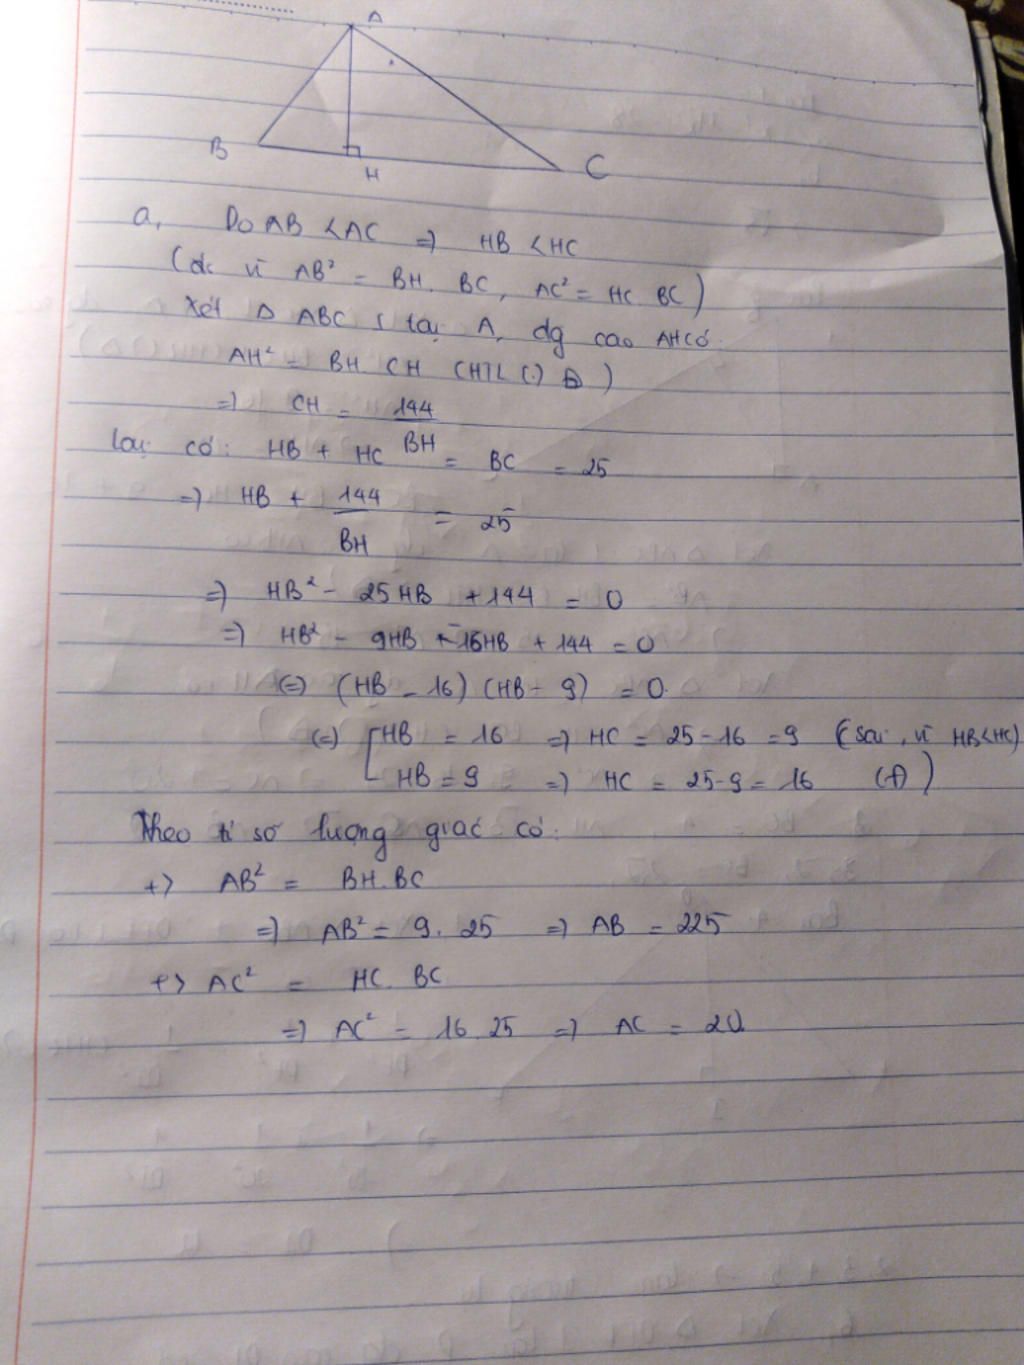 A
B
H
C
a, Do AB < AC => HB < HC
(đc vì AB² = BH. BC, AC² = HC. BC)
Xét Δ ABC tại A, đg cao AH có
AH² = BH. CH (HTL
=> CH = 144/BH
lại có: HB + HC = BC = 25
=> HB + 144/BH = 25
=> HB² - 25HB + 144 = 0
=> HB² - 9HB - 16HB + 144 = 0
(=) (HB - 16) (HB - 9) = 0.
(=) [HB = 16 => HC = 25 - 16 = 9 (sai, vì HB<HC)
HB = 9 => HC = 25-9 = 16 (t/)
Theo tỉ số lượng giác có:
+> AB² = BH. BC
=> AB² = 9. 25 => AB = 225
+> AC² = HC. BC
=> AC² = 16. 25 => AC = 20